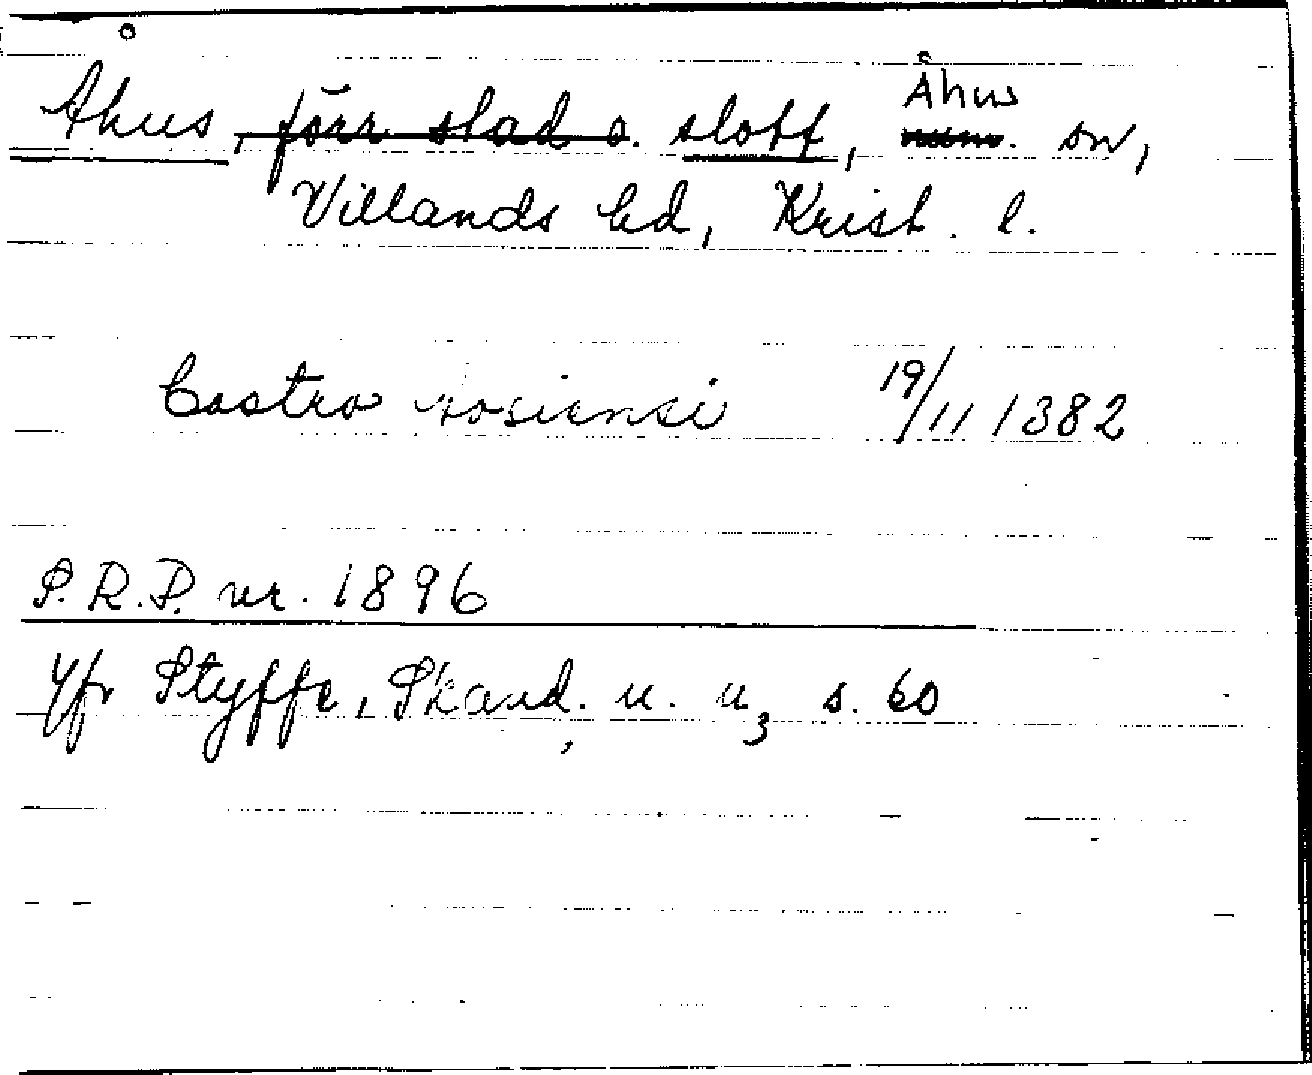 Åhus, förr stad o. slott, Åhus sn,
Villands hd, Krist. l.
Castro 19/11 1382
S.R.P. nr. 1896
Jfr Styffe, Skand. u. u3 s. 60